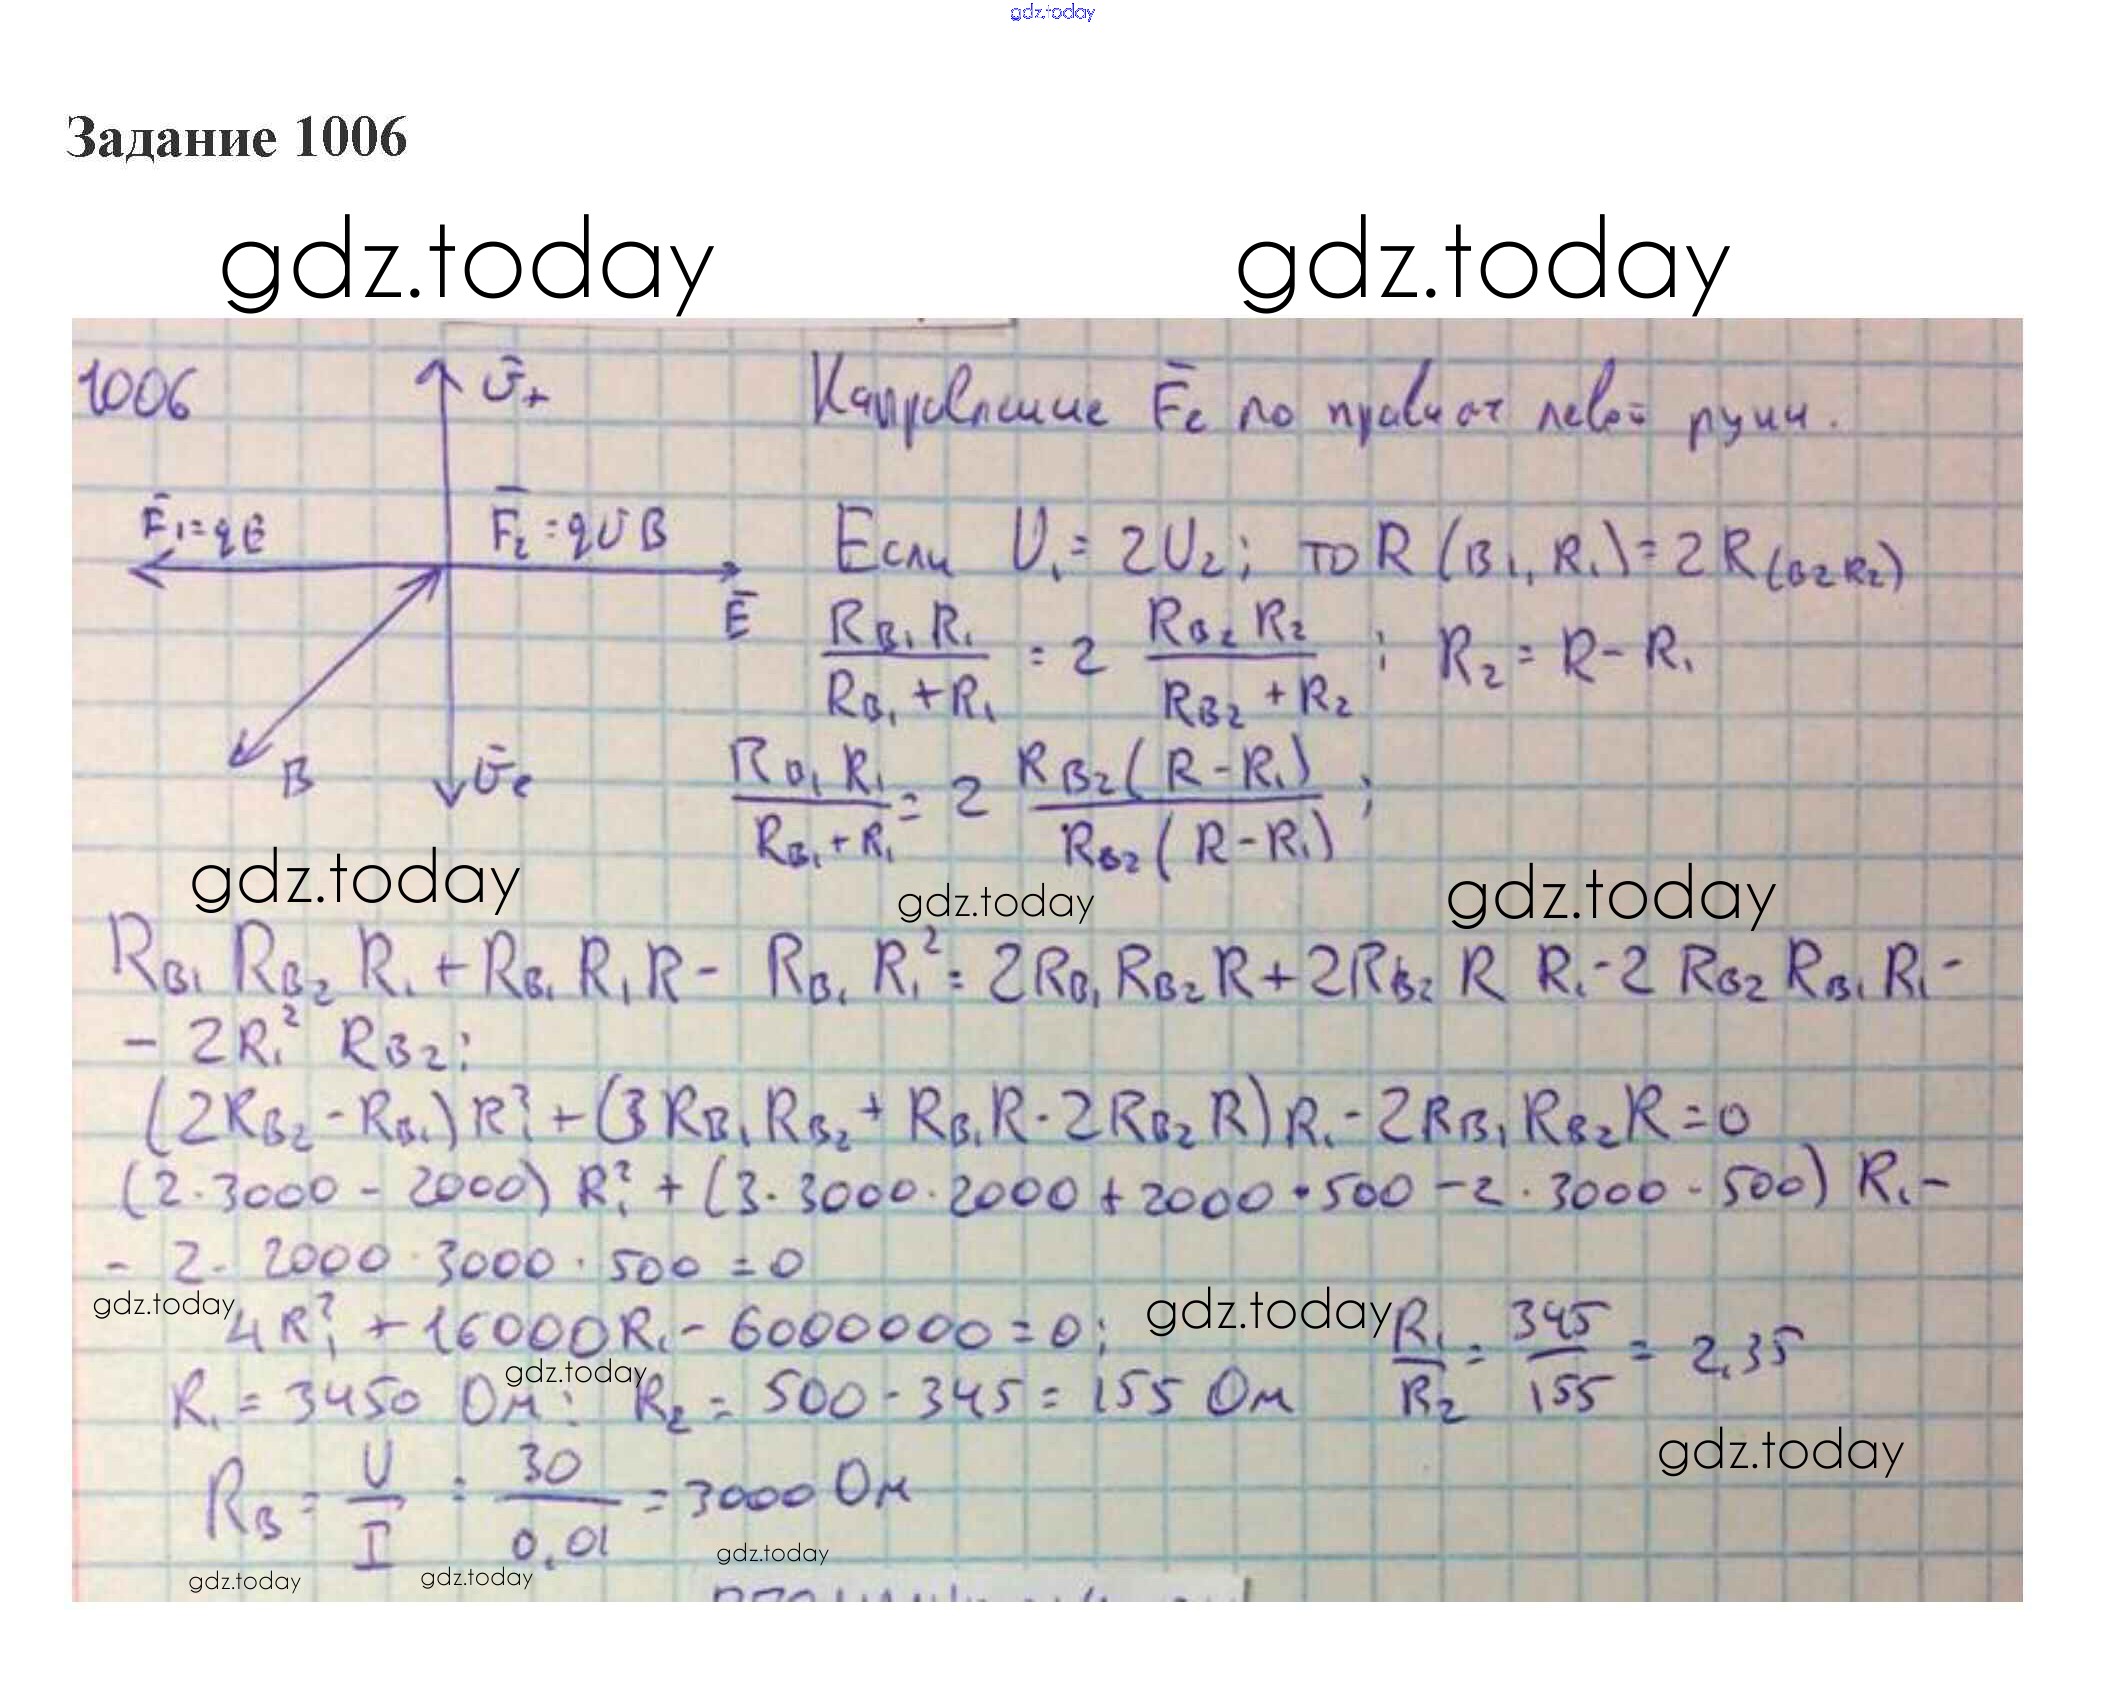 gdz.today
Задание 1006
gdz.today gdz.today
1006
v̄₊
Направление F̄c по правилу левой руки.
F̄₁=qE
F̄₂=qvB
Ē
B
v̄c
Если U₁=2U₂; то R(B₁,R₁)=2R(B₂R₂)
R_B₁R₁/(R_B₁+R₁) = 2 R_B₂R₂/(R_B₂+R₂); R₂=R-R₁
R_B₁R₁/(R_B₁+R₁) = 2 R_B₂(R-R₁)/R_B₂(R-R₁);
gdz.today gdz.today gdz.today
R_B₁R_B₂R₁+R_B₁R₁R- R_B₁R₁²=2R_B₁R_B₂R+2R_B₂RR₁-2R_B₂R_B₁R₁-
-2R₁²R_B₂;
(2R_B₂-R_B₁)R₁²+(3R_B₁R_B₂+R_B₁R-2R_B₂R)R₁-2R_B₁R_B₂R=0
(2·3000-2000)R₁²+(3·3000·2000+2000·500-2·3000·500)R₁-
-2·2000·3000·500=0
gdz.today gdz.today
4R₁²+16000R₁-6000000=0; R₁/R₂=345/155=2,35
gdz.today
R₁=3450 Ом; R₂=500-345=155 Ом
gdz.today
R_B=U/I=30/0,01=3000 Ом
gdz.today gdz.today gdz.today